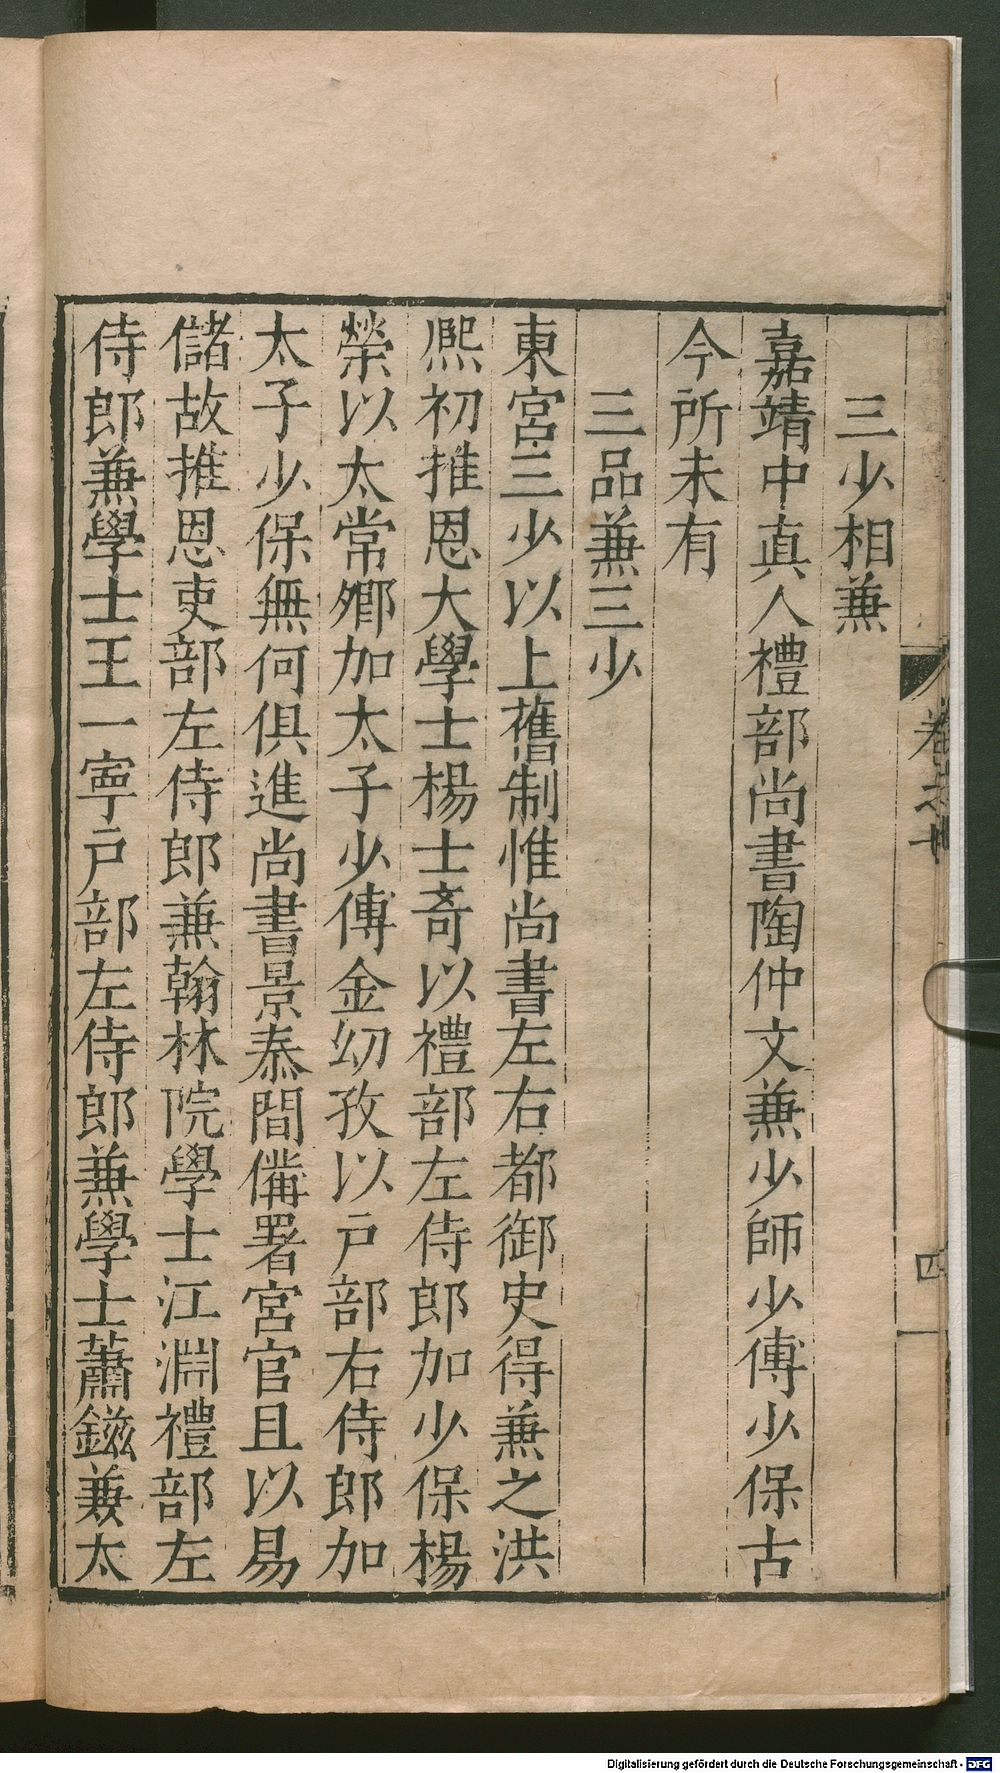 三少相兼
嘉靖中真人禮部尚書陶仲文兼少師少傅少保古
今所未有
三品兼三少
東宮三少以上舊制惟尚書左右都御史得兼之洪
熈初推恩大學士楊士奇以禮部左侍郎加少保楊
榮以太常卿加太子少傅金幼孜以戶部右侍郎加
太子少保無何俱進尚書景泰間僃署宮官且以易
儲故推恩吏部左侍郎兼翰林院學士江淵禮部左
侍郎兼學士王一寧戶部左侍郎兼學士蕭鎡兼太
四
Digitalisierung gefördert durch die Deutsche Forschungsgemeinschaft - DFG